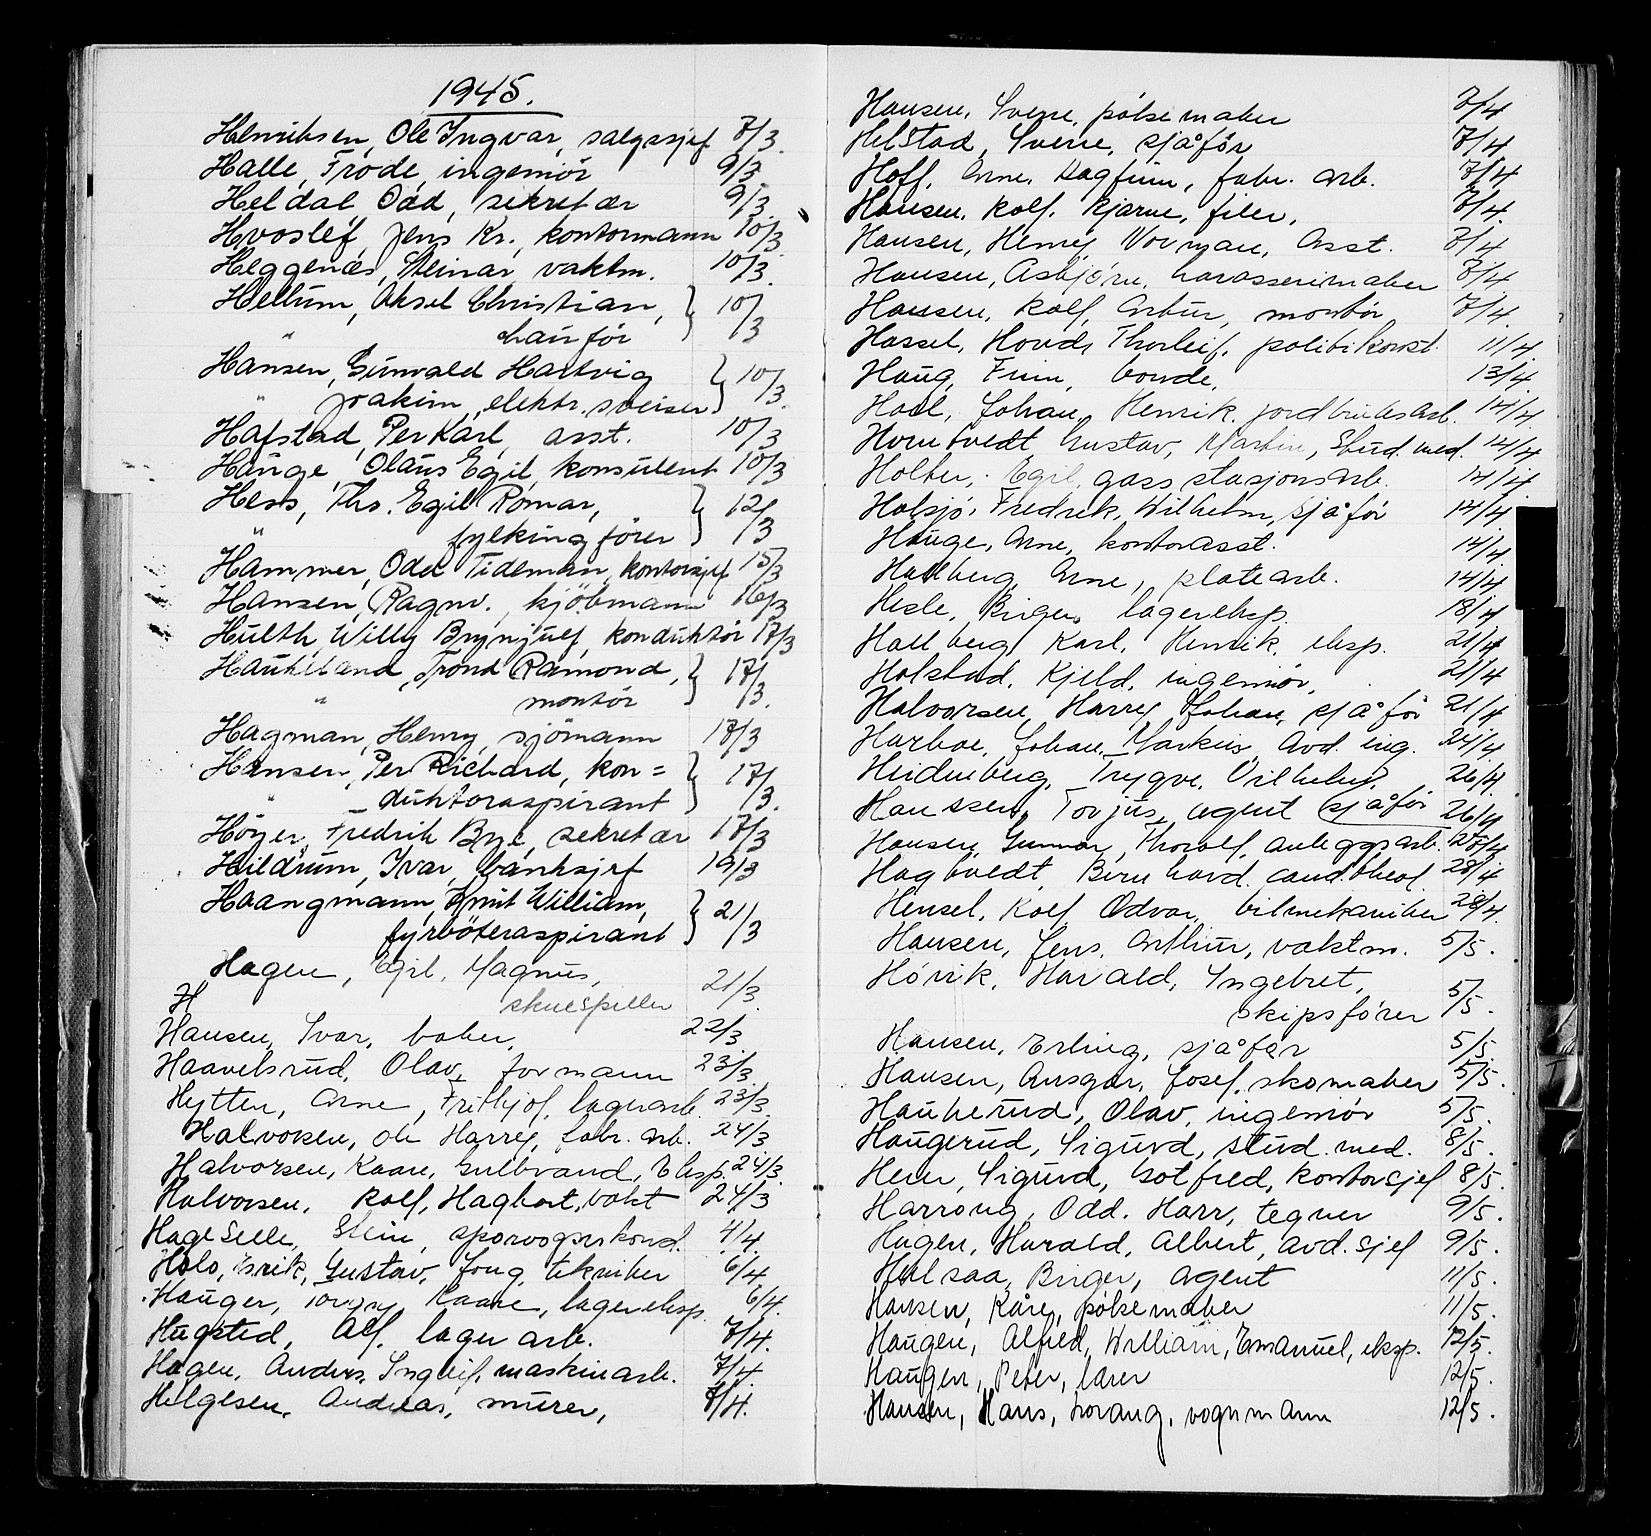 1945.
Henriksen, Ole Ingvar, salgssjef 7/3.
Halle, Frode, ingeniör 9/3
Heldal Odd, sekretær 9/3.
Hvoslef, Jens Kr., kontormann 10/3.
Heggenes, Steinar vaktm. 10/3.
Hellum, Aksel Christian, } 10/3
" sauför
Hansen, Gunvald Hartvig } 10/3.
" Joakim, elektr. sveiser
Hafstad, Per Karl, asst. 10/3
Hauge, Olaus Egil, konsulent 10/3
Hess, Ths. Egil Romar, } 12/3
" fylkingförer
Hammer, Odd Tideman, kontorsjef 15/3
Hansen, Ragnv. kjöbmann 16/3
Hulth, Willy Brynjulf, konduktör 17/3
Haukeland, Trond Ramond, } 17/3.
" montör
Hagman, Henry, sjömann 17/3
Hansen, Per Richard, kon= } 17/3.
" _ duktoraspirant
Höyer, Fredrik Bye, sekretær 17/3
Hildrum, Ivar, banksjef 19/3
Haangmann, Arnt William, } 21/3
fyrböteraspirant
Hagen, Egil, Magnus, 21/3.
H skuespiller
Hansen, Ivar, baker, 22/3.
Haavelsrud, Olav, formann 23/3.
Hytten, Arne, Frithjof, lagerarb. 23/3.
Halvorsen, Ole Harry, fabr. arb. 24/3
Halvorsen, Kaare, Gulbrand, Eksp. 24/3.
Halvorsen, Rolf, Hagbart, vakt 24/3
Hageselle, Stein, sporvognskond. 4/4.
Holo, Erik, Gustav, Long, tekniker 6/4.
Hauger, Kaare, lagereksp. 6/4.
Hugsted, Alf, lager arb. 7/4.
Hagen, Anders, Ingleif, maskinarb. 7/4.
Helgesen, Andreas, murer, 7/4.
Hansen, Sverre, pölsemaker 7/4
Helstad, Sverre, sjåför 7/4
Hoff, Arne, Dagfinn, fabr. arb. 7/4
Hansen, Rolf, Bjarne, filer, 7/4.
Hansen, Henry, Norman, Asst. 7/4
Hansen, Asbjörn, karosserimaker 7/4
Hansen, Rolf, Artur, montör 7/4.
Hassel, Thorleif, politikonst. 11/4.
Haug, Finn, bonde, 13/4.
Hoel, Johan, Henrik, jordbruksarb. 14/4.
Horntvedt Gustav, Martin, Stud. med. 14/4
Holter, Egil, gass stasjonsarb. 14/4
Holsjö, Fredrik, Wilhelm, sjåför 14/4
Hauge, Arne, kontorasst. 14/4.
Hallberg, Arne, platearb. 14/4
Hesle, Birger, lagereksp. 18/4
Hallberg, Karl, Henrik, eksp. 21/4
Holstad, Kjeld, ingeniör, 21/4
Halvorsen, Harry, Johan, sjåför 21/4
Harboe, Johan, Markus, Avd. ing. 24/4.
Heidenberg, Trygve, Vilhelm, 26/4.
Hanssen, Torjus, agent sjåför 26/4
Hansen, Gunnar, Thoralf, anleggsarb. 28/4
Hagtvedt, Bernhard, cand. theol. 28/4
Hensel, Rolf, Odvar, bilmekaniker 28/4.
Hansen, Jens, Arthur, vaktm. 5/5.
Hövik, Harald, Ingebret, 5/5.
skipsförer
Hansen, Erling, sjåför 5/5.
Hansen, Ansgar, Josef, skomaker 5/5.
Haukerud, Olav, ingeniör 5/5.
Haugerud, Sigurd, stud. med. 8/5.
Heier, Sigurd, Gotfred, kontorsjef 8/5.
Harroug, Odd, Harr, tegner 9/5.
Hagen, Harald, Albert, Avd. sjef 9/5.
Hulsaa, Birger, agent 11/5.
Hansen, Kåre, pölsemaker 11/5.
Haugen, Alfred, William, Emanuel, eksp. 12/5.
Haugen, Peter, lærer 12/5.
Hansen, Hans, Lorang, vognmann 12/5.